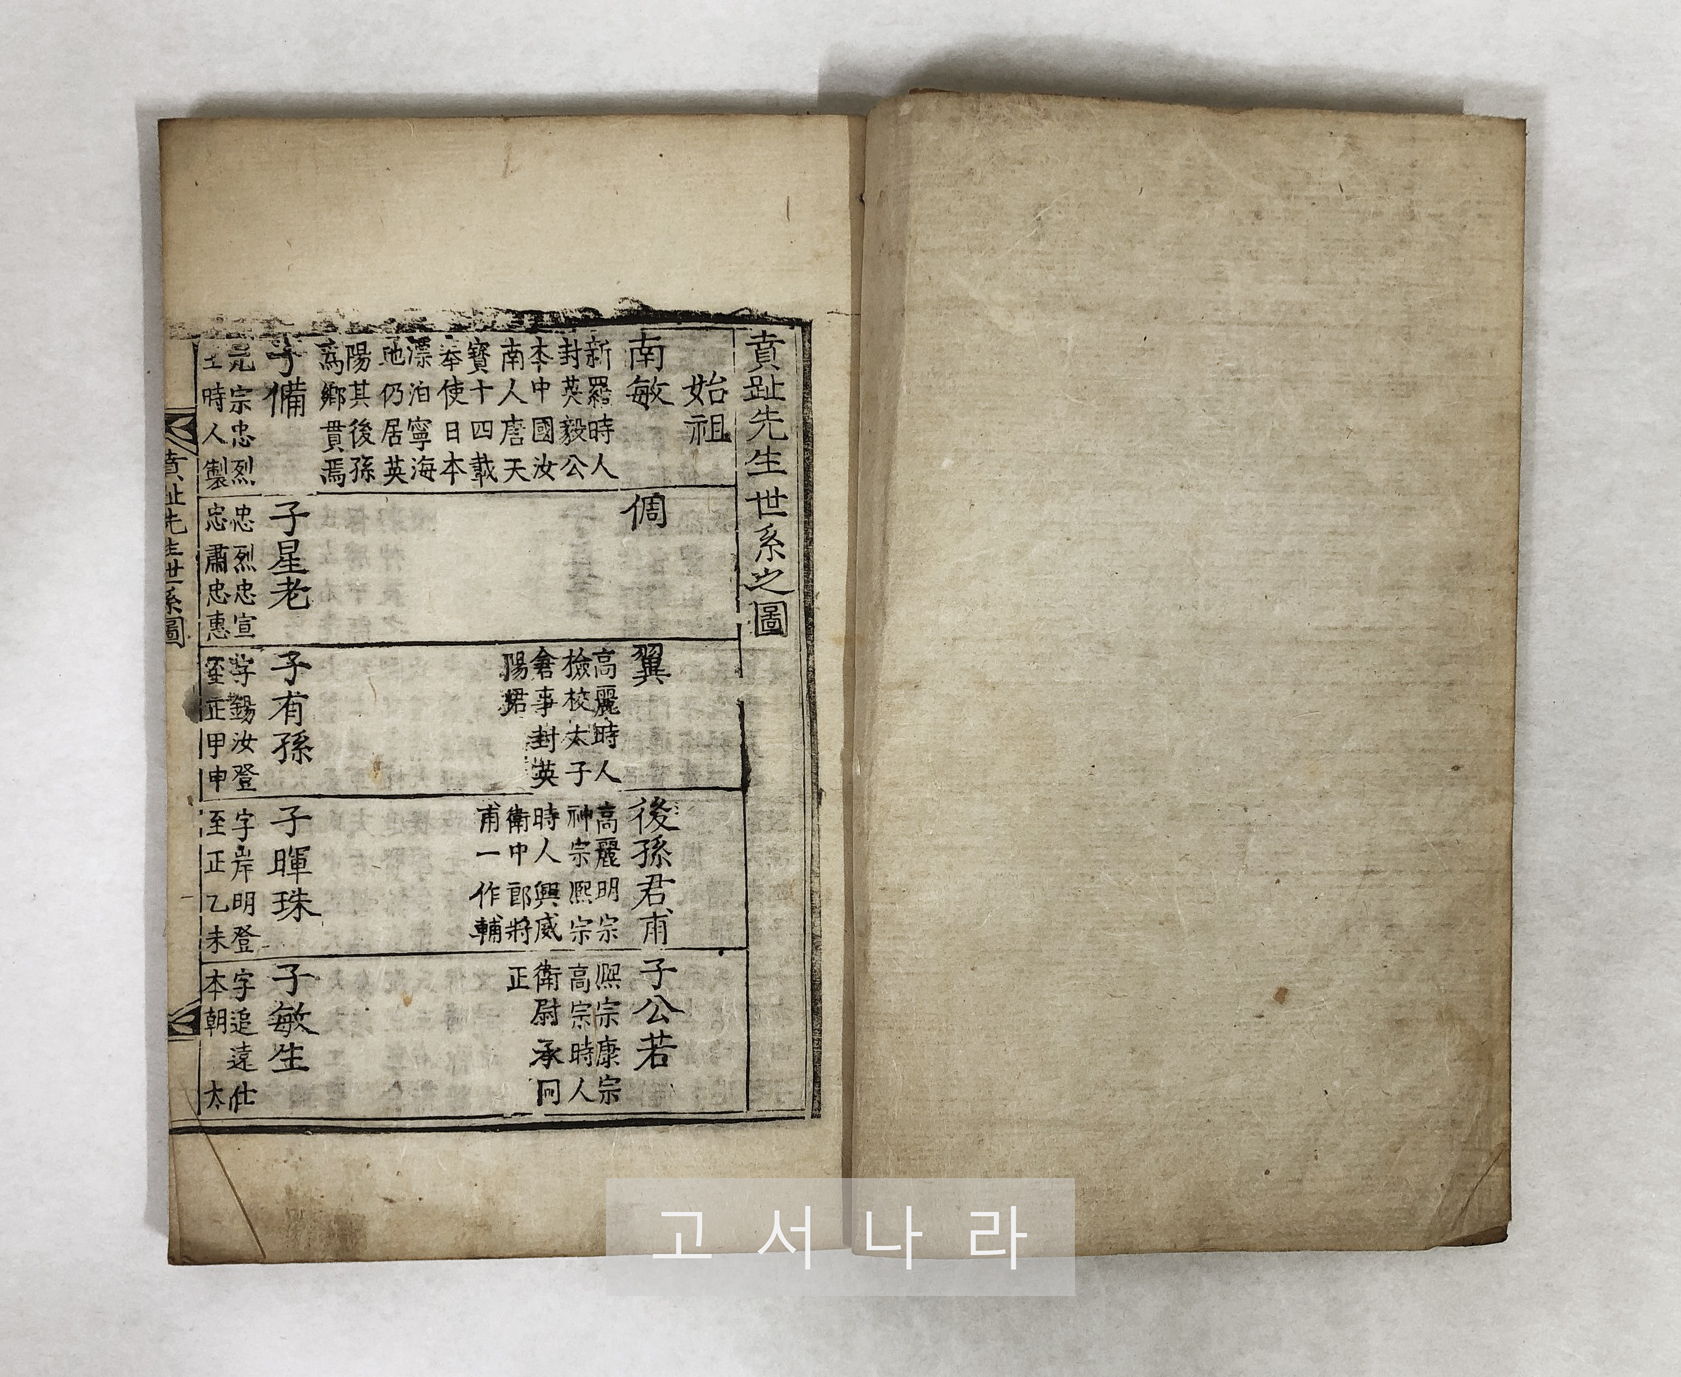 賁趾先生世系之圖
始祖
南敏
新羅時人
封英毅公
本中國汝
南人唐天
寶十四載
奉使日本
漂泊寧海
地仍居英
陽其後孫
爲鄕貫焉
倜
翼
高麗時人
檢校太子
詹事封英
陽君
後孫君甫
高麗明宗
神宗熙宗
時人興威
衛中郞將
甫一作輔
子公若
熙宗康宗
高宗時人
衛尉承同
正
子備
元宗忠烈
王時人製
子星老
忠烈忠宣
忠肅忠惠
子有孫
字錫汝登
至正甲申
子暉珠
字岸明登
至正乙未
子敏生
字追遠仕
本朝 太
賁趾先生世系圖
고서나라